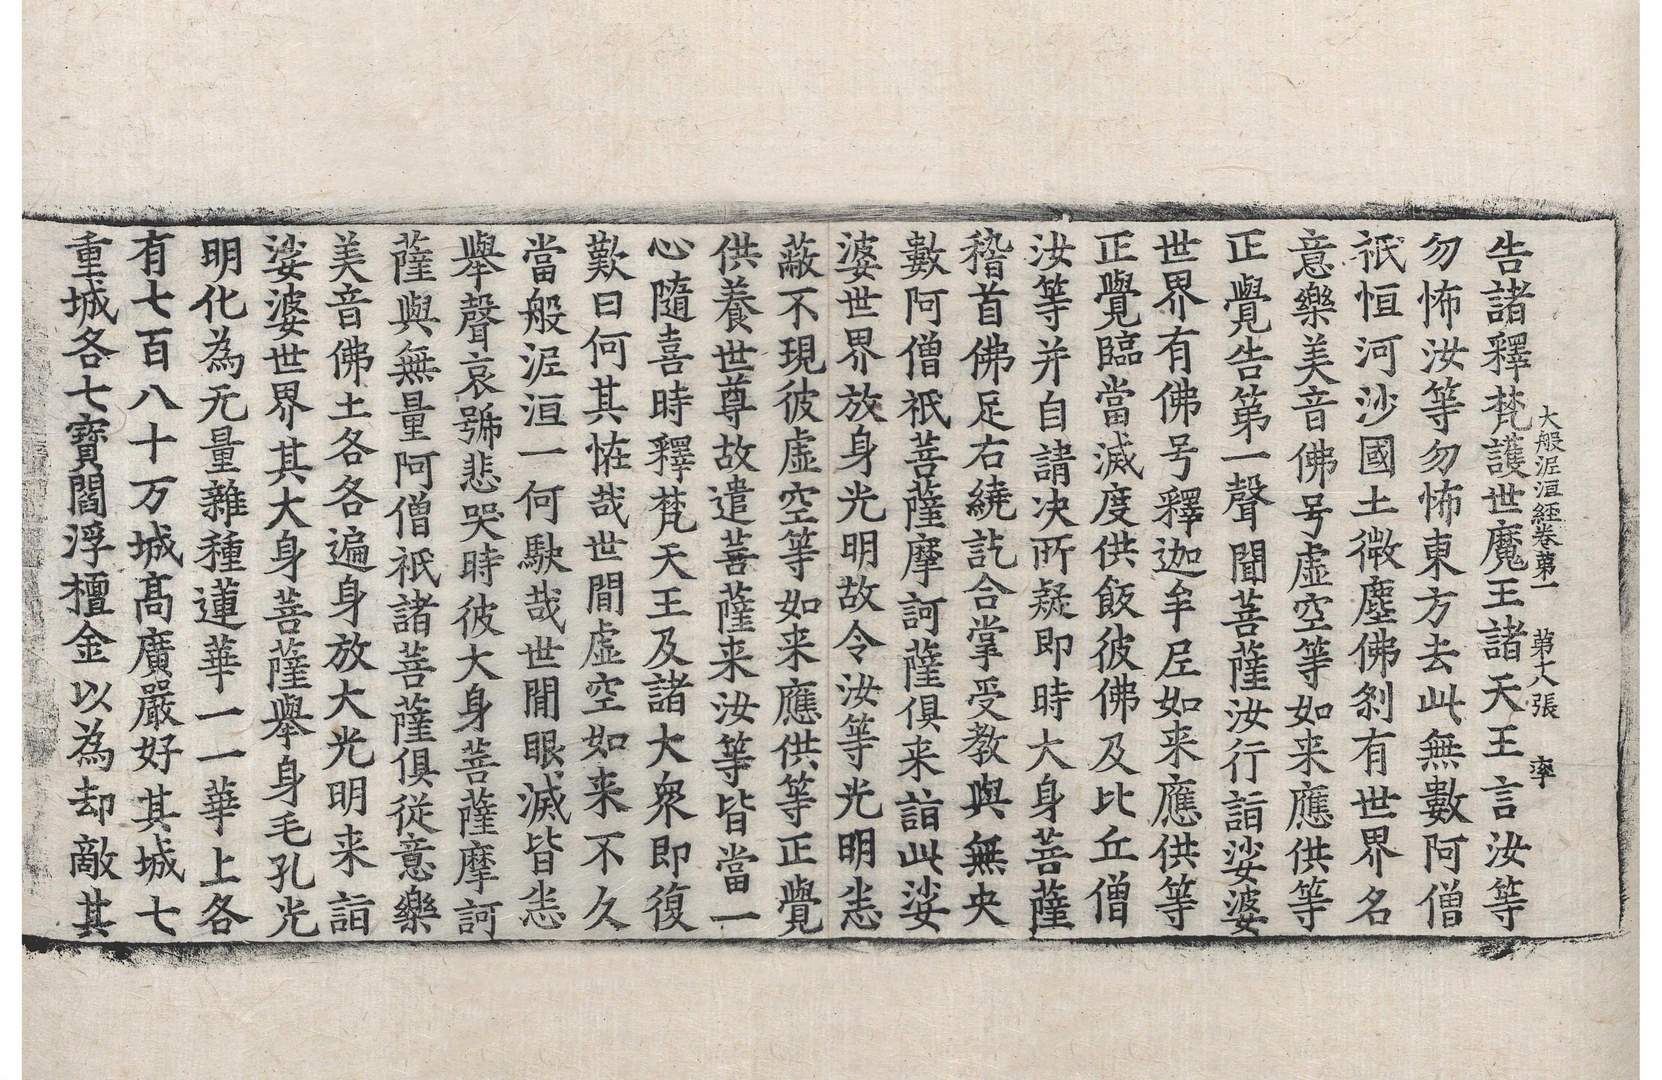 大般泥洹経卷第一 第十八張 率
告諸釋梵護世魔王諸天王言汝等
勿怖汝等勿怖東方去此無數阿僧
祇恒河沙國土微塵佛刹有世界名
意樂美音佛号虛空等如来應供等
正覺告第一聲聞菩薩汝行詣娑婆
世界有佛号釋迦牟尼如来應供等
正覺臨當滅度供飯彼佛及比丘僧
汝等并自請决所疑即時大身菩薩
稽首佛足右繞訖合掌受教與無央
數阿僧祇菩薩摩訶薩俱来詣此娑
婆世界放身光明故令汝等光明恙
蔽不現彼虛空等如来應供等正覺
供養世尊故遣菩薩来汝等皆當一
心隨喜時釋梵天王及諸大衆即復
歎曰何其恠哉世間虛空如来不久
當般泥洹一何駛哉世間眼滅皆恙
舉聲哀號悲哭時彼大身菩薩摩訶
薩與無量阿僧祇諸菩薩俱從意樂
美音佛土各各遍身放大光明来詣
娑婆世界其大身菩薩舉身毛孔光
明化為无量雜種蓮華一一華上各
有七百八十万城髙廣嚴好其城七
重城各七寶閻浮檀金以為却敵其